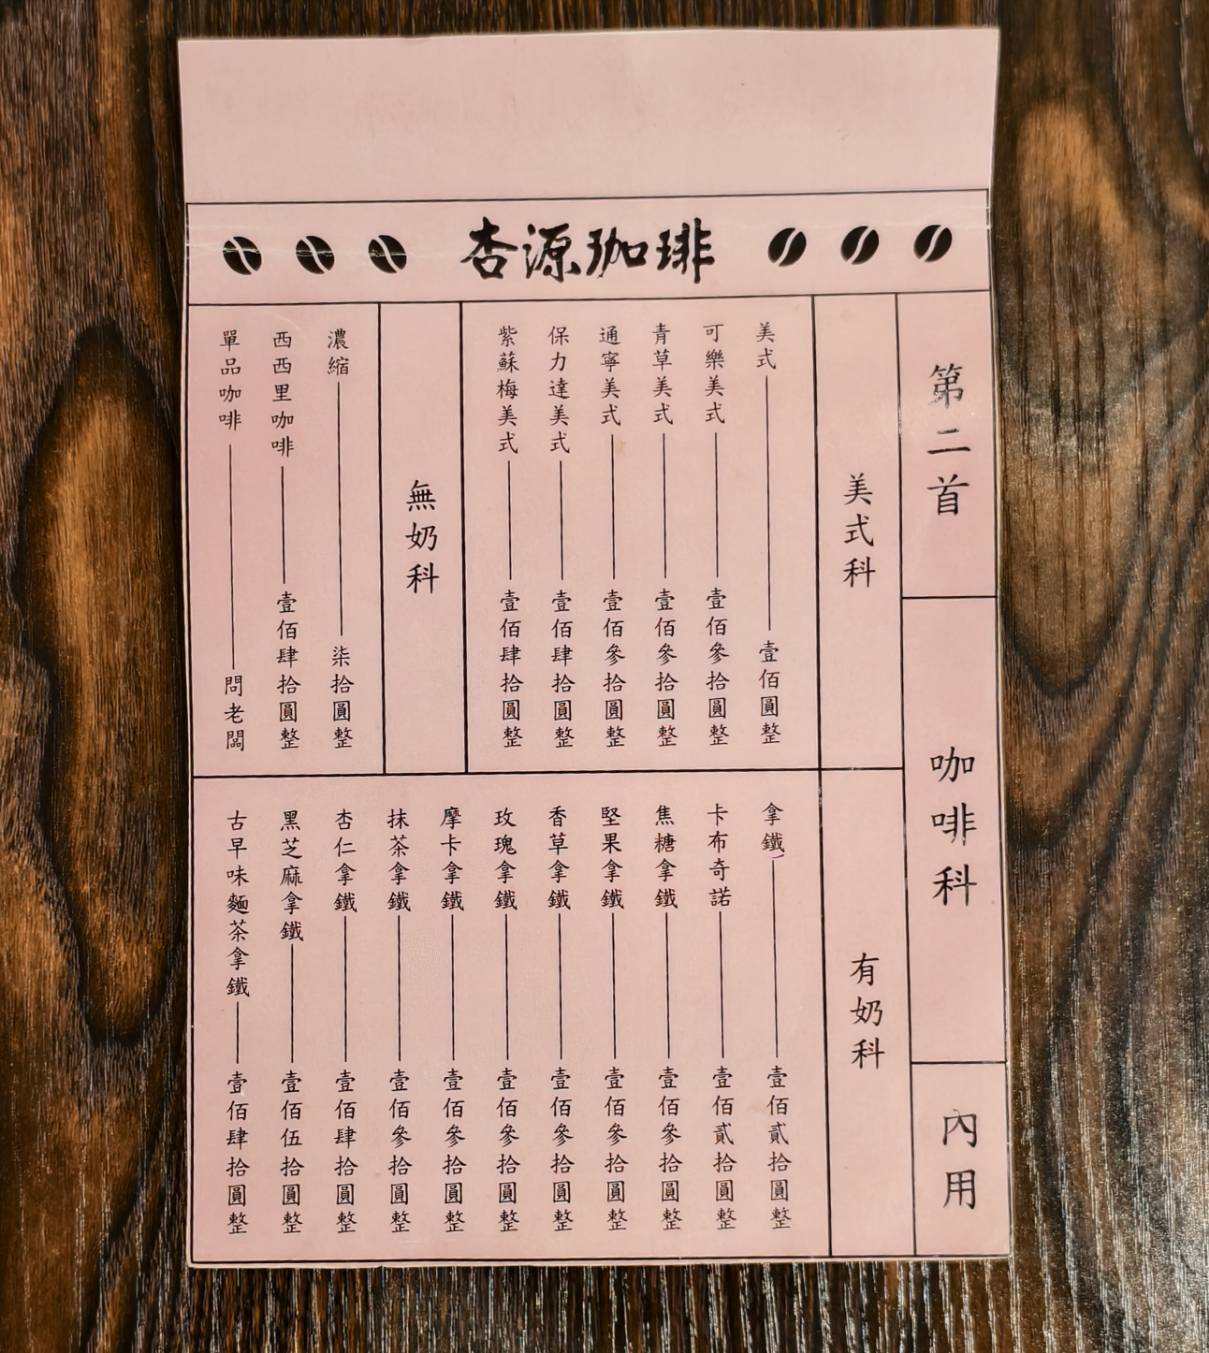 杏源珈琲
第二首
咖啡科
內用
美式科
美式 壹佰圓整
可樂美式 壹佰參拾圓整
青草美式 壹佰參拾圓整
通寧美式 壹佰參拾圓整
保力達美式 壹佰肆拾圓整
紫蘇梅美式 壹佰肆拾圓整
無奶科
濃縮 柒拾圓整
西西里咖啡 壹佰肆拾圓整
單品咖啡 問老闆
有奶科
拿鐵 壹佰貳拾圓整
卡布奇諾 壹佰貳拾圓整
焦糖拿鐵 壹佰參拾圓整
堅果拿鐵 壹佰參拾圓整
香草拿鐵 壹佰參拾圓整
玫瑰拿鐵 壹佰參拾圓整
摩卡拿鐵 壹佰參拾圓整
抹茶拿鐵 壹佰參拾圓整
杏仁拿鐵 壹佰肆拾圓整
黑芝麻拿鐵 壹佰伍拾圓整
古早味麵茶拿鐵 壹佰肆拾圓整